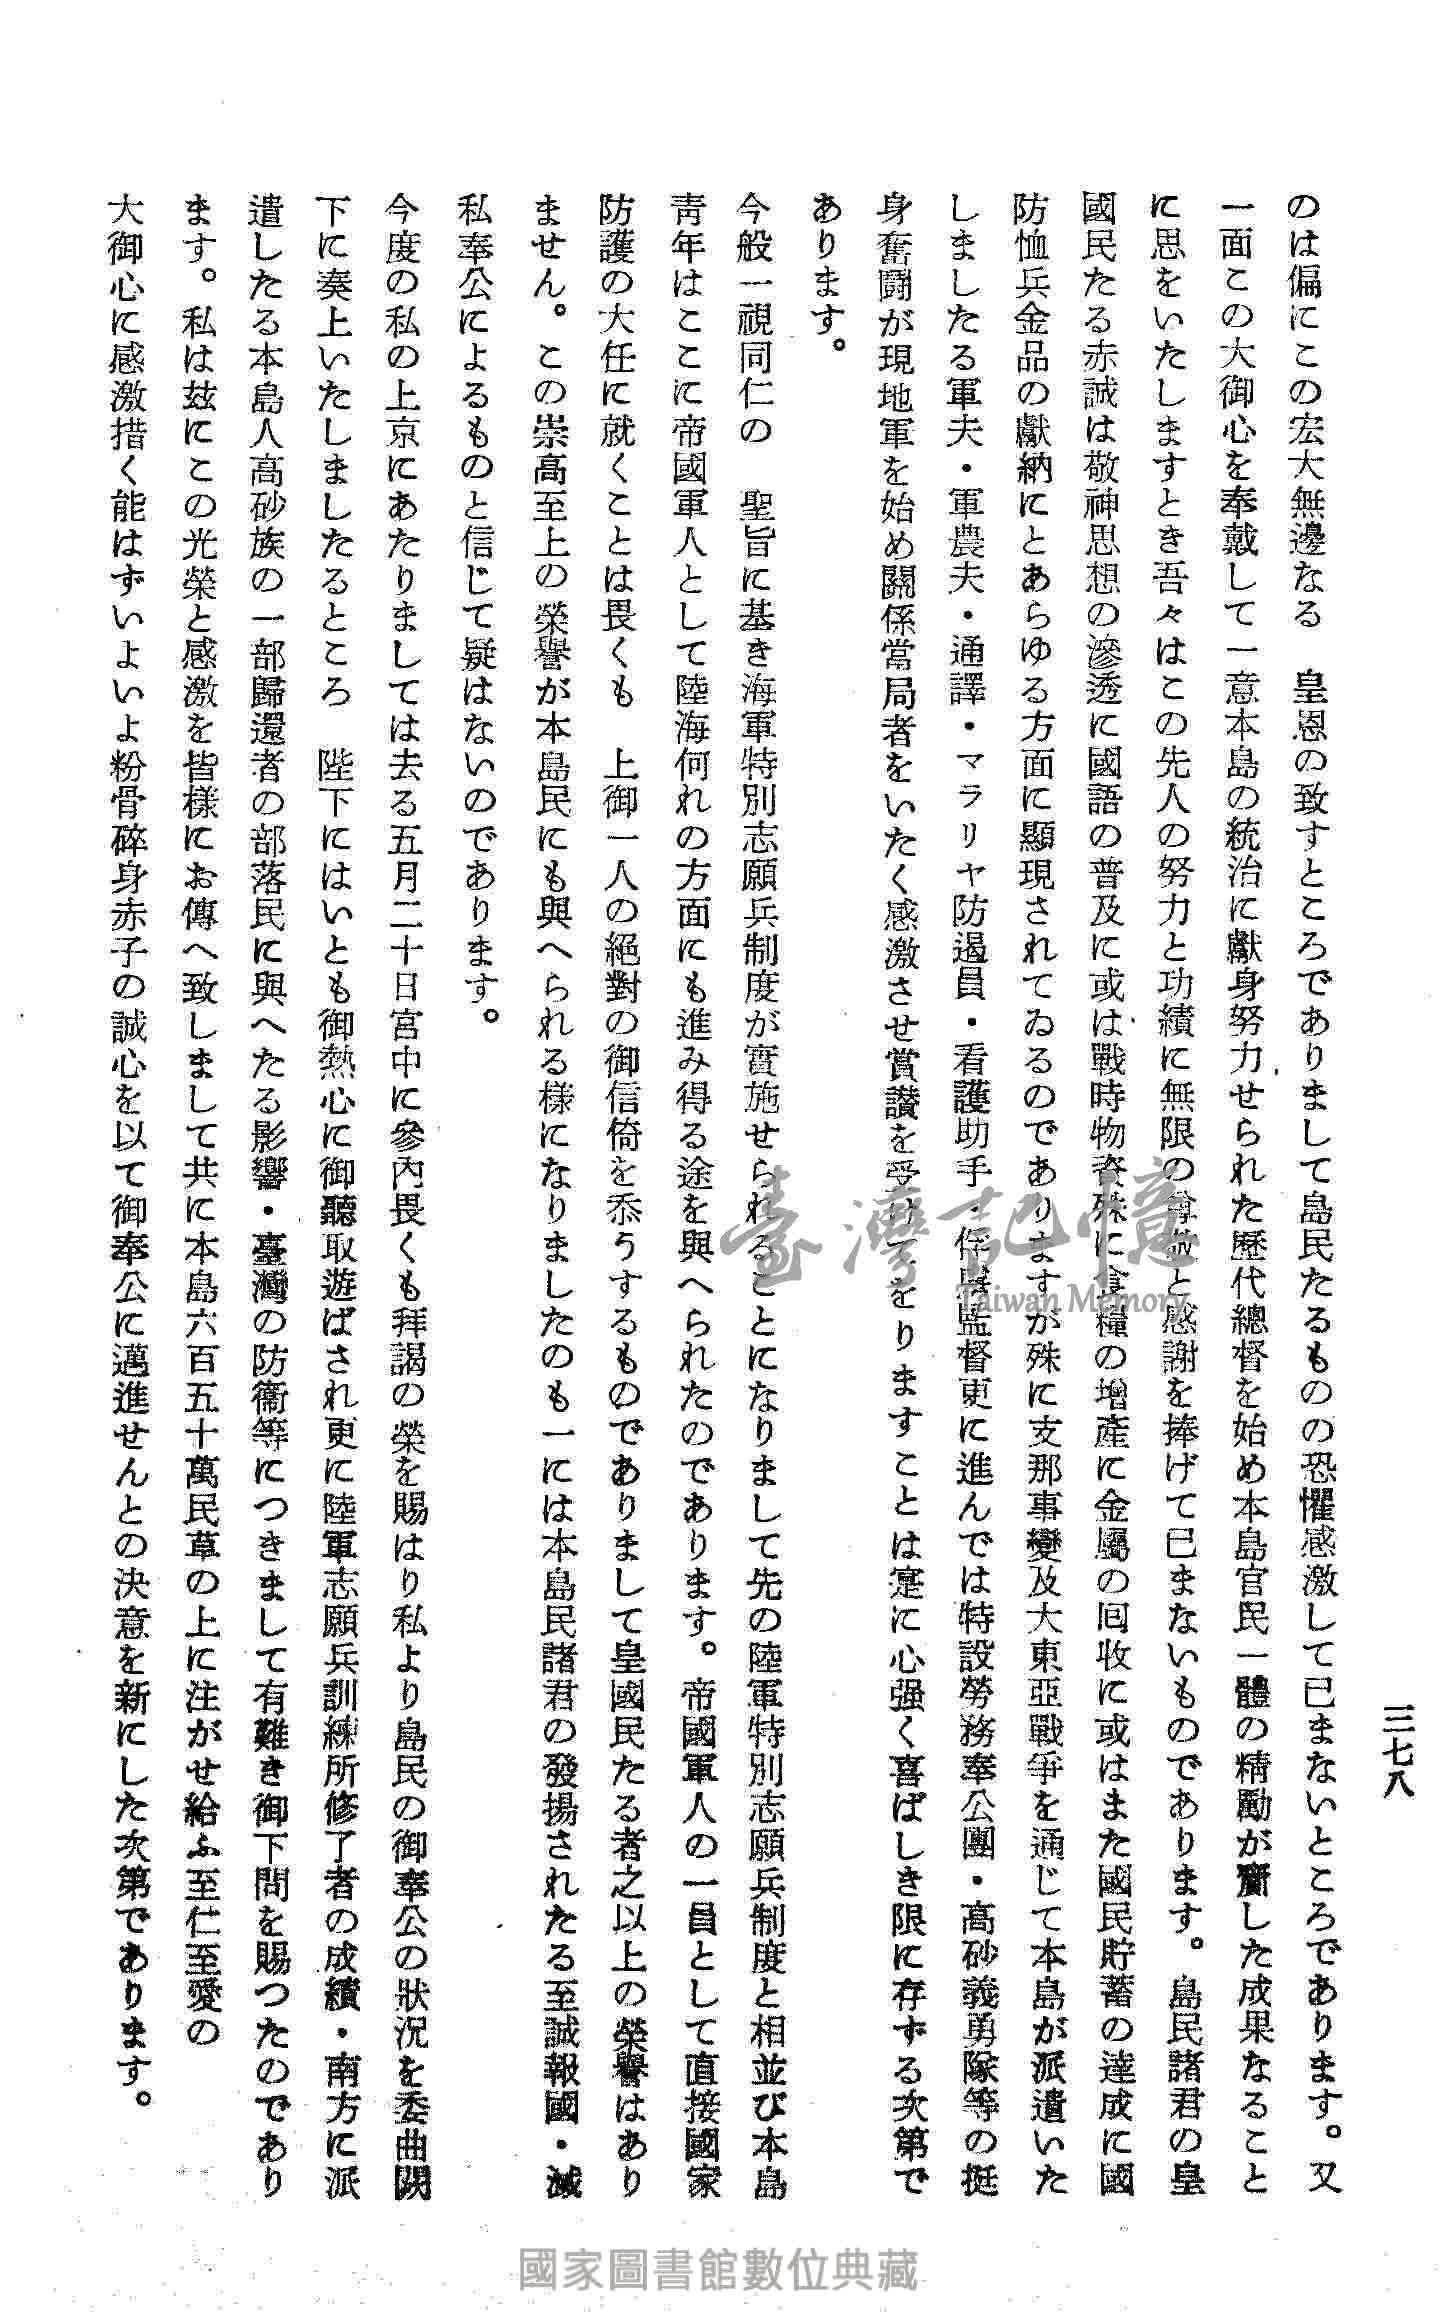 三七八
のは偏にこの宏大無邊なる　皇恩の致すところでありまして島民たるものの恐懼感激して已まないところであります。又
一面この大御心を奉戴して一意本島の統治に獻身努力せられた歷代總督を始め本島官民一體の精勵が齎した成果なること
に思をいたしますとき吾々はこの先人の努力と功績に無限の尊敬と感謝を捧げて已まないものであります。島民諸君の皇
國民たる赤誠は敬神思想の滲透に國語の普及に或は戰時物資殊に食糧の增產に金屬の回收に或はまた國民貯蓄の達成に國
防恤兵金品の獻納にとあらゆる方面に顯現されてゐるのでありますが殊に支那事變及大東亞戰爭を通じて本島が派遣いた
しましたる軍夫・軍農夫・通譯・マラリヤ防遏員・看護助手・俘虜監督更に進んでは特設勞務奉公團・高砂義勇隊等の挺
身奮鬪が現地軍を始め關係當局者をいたく感激させ賞讃を受けてをりますことは寔に心强く喜ばしき限に存ずる次第で
あります。
今般一視同仁の　聖旨に基き海軍特別志願兵制度が實施せられることになりまして先の陸軍特別志願兵制度と相並び本島
靑年はここに帝國軍人として陸海何れの方面にも進み得る途を與へられたのであります。帝國軍人の一員として直接國家
防護の大任に就くことは畏くも　上御一人の絕對の御信倚を忝うするものでありまして皇國民たる者之以上の榮譽はあり
ません。この崇高至上の榮譽が本島民にも與へられる樣になりましたのも一には本島民諸君の發揚されたる至誠報國・滅
私奉公によるものと信じて疑はないのであります。
今度の私の上京にあたりましては去る五月二十日宮中に參內畏くも拜謁の榮を賜はり私より島民の御奉公の狀況を委曲闕
下に奏上いたしましたるところ　陛下にはいとも御熱心に御聽取遊ばされ更に陸軍志願兵訓練所修了者の成績・南方に派
遣したる本島人高砂族の一部歸還者の部落民に與へたる影響・臺灣の防衞等につきまして有難き御下問を賜つたのであり
ます。私は玆にこの光榮と感激を皆樣にお傳へ致しまして共に本島六百五十萬民草の上に注がせ給ふ至仁至愛の
大御心に感激措く能はずいよいよ粉骨碎身赤子の誠心を以て御奉公に邁進せんとの決意を新にした次第であります。
臺灣記憶
Taiwan Memory
國家圖書館數位典藏